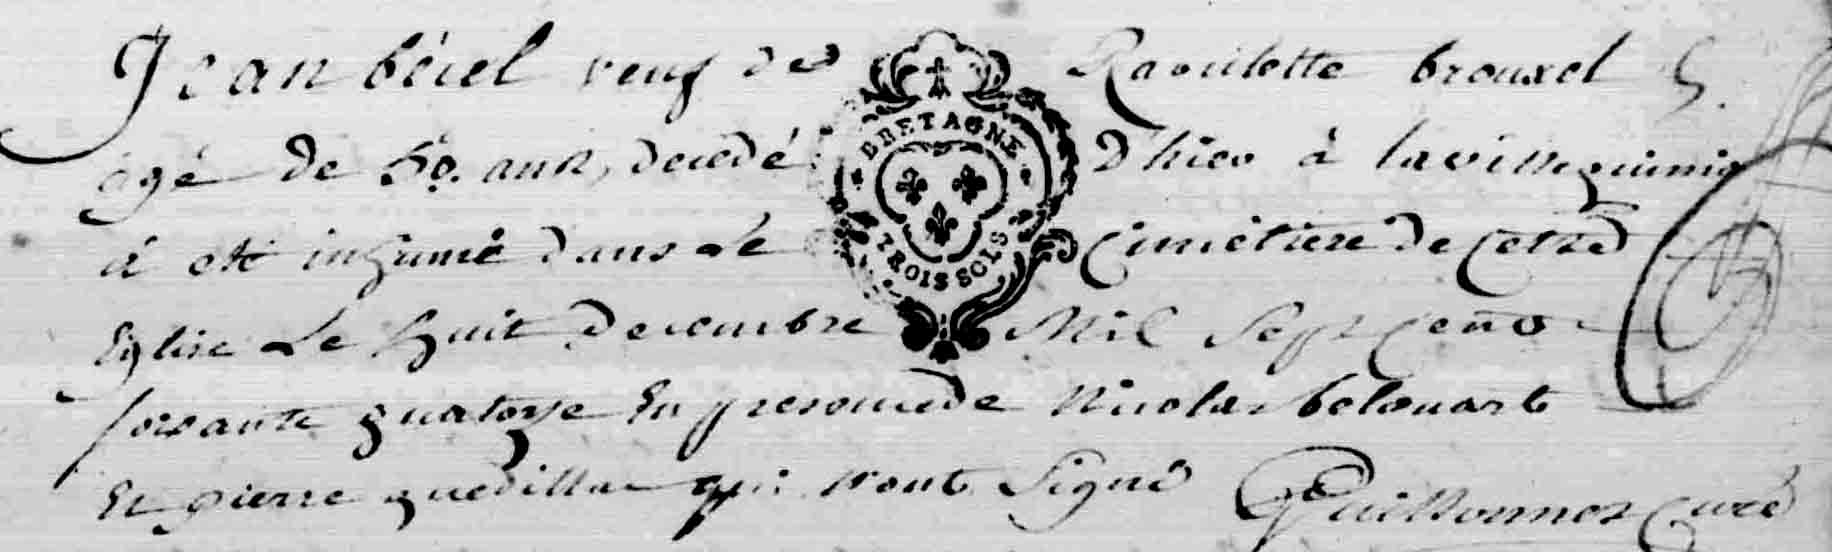 Jean bécel veuf de Raoulette brouxel
agé de 50. ans, decedé D'hier à la ville
a eté inhumé dans Le Cimetiere de Cette
Eglise Le huit Decembre Mil Sept Cents
soixante quatorze En presence de Nicolas belouart
Et pierre quedillac qui n'ont Signé curé
BRETAGNE
TROIS SOLS